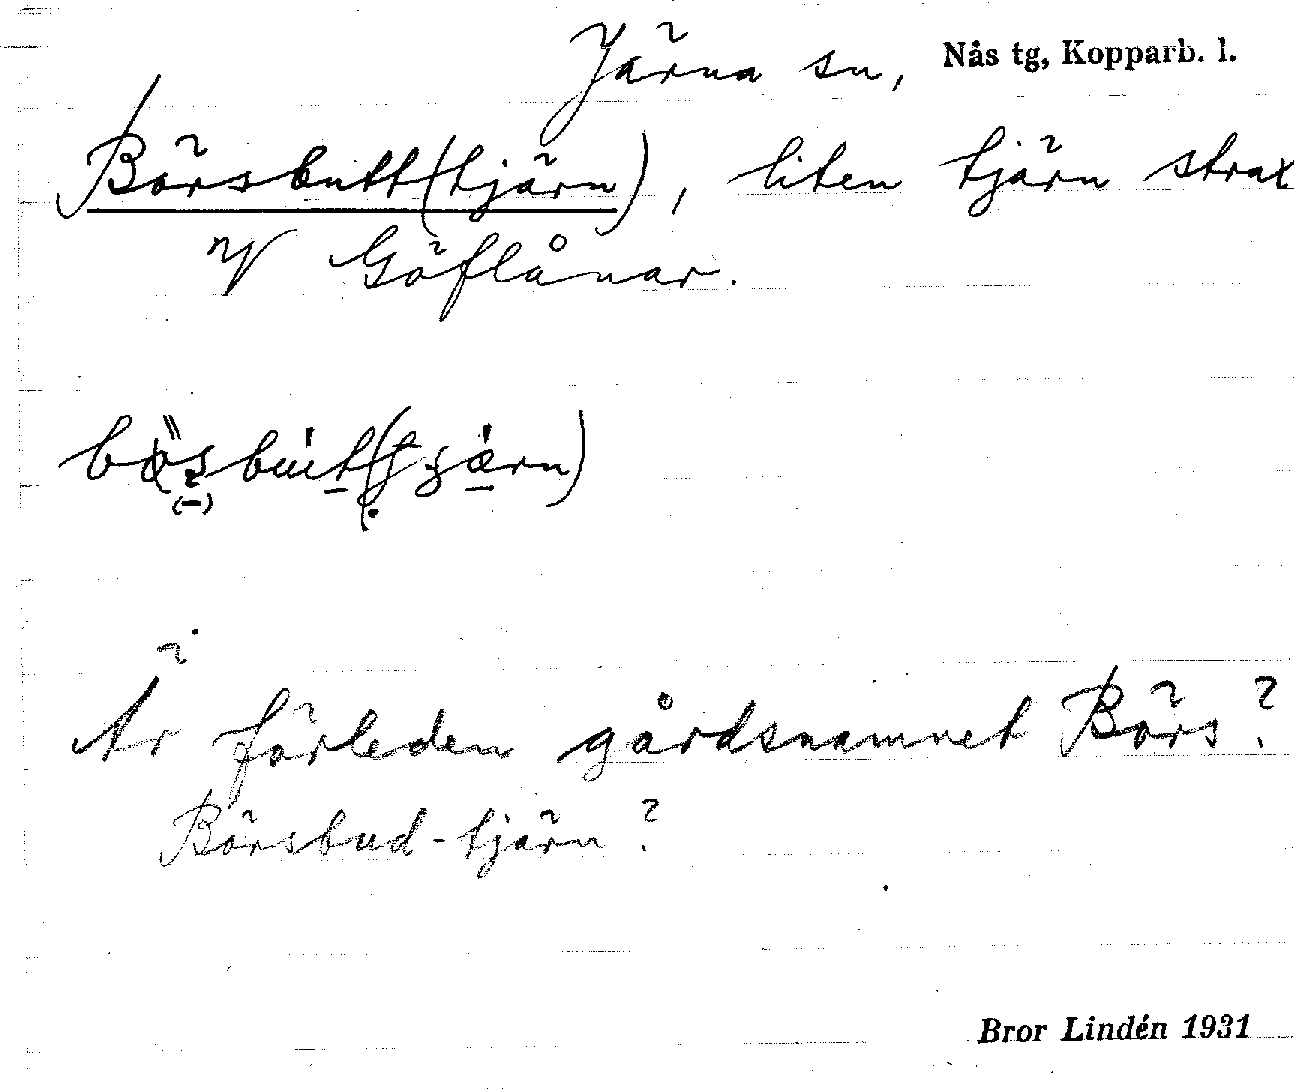 Järna sn, Nås tg, Kopparb. l.
Börsbutt(tjärn), liten tjärn strax
v Göflånar.
Är förleden gårdsnamnet Börs?
Börsbud-tjärn?
Bror Lindén 1931